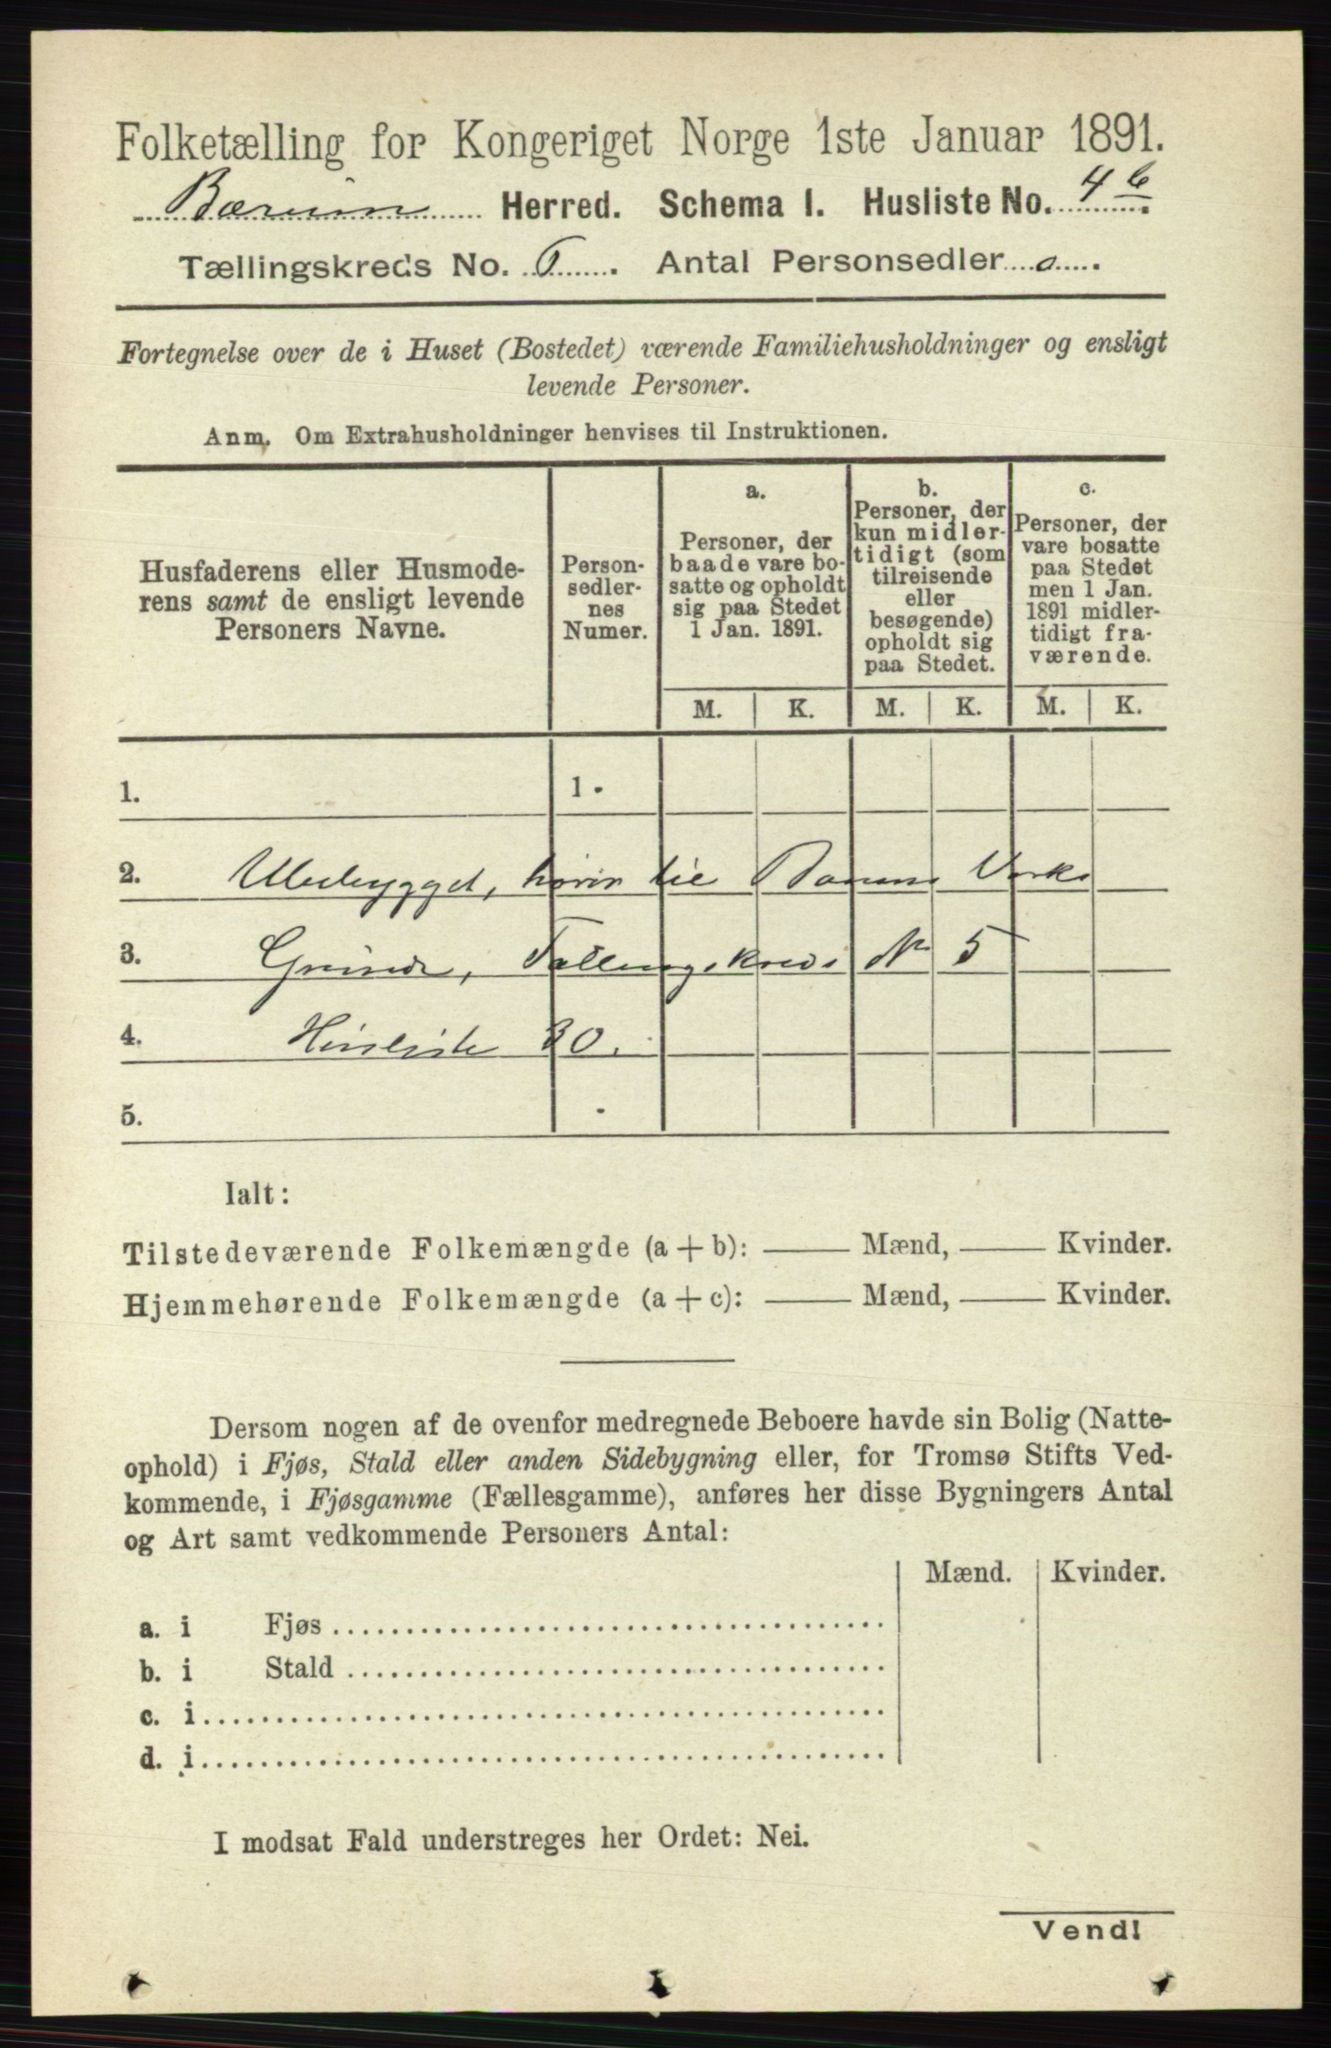 Folketælling for Kongeriget Norge 1ste Januar 1891.
Bærum Herred. Schema I. Husliste No. 4 b.
Tællingskreds No. 6. Antal Personsedler 0.
Fortegnelse over de i Huset (Bostedet) værende Familiehusholdninger og ensligt
levende Personer.
Anm. Om Extrahusholdninger henvises til Instruktionen.
Husfaderens eller Husmode-
rens samt de ensligt levende
Personers Navne.
Person-
sedler-
nes
Numer.
a.
Personer, der
baade vare bo-
satte og opholdt
sig paa Stedet
1 Jan. 1891.
b.
Personer, der
kun midler-
tidigt (som
tilreisende
eller
besøgende)
opholdt sig
paa Stedet.
c.
Personer, der
vare bosatte
paa Stedet
men 1 Jan.
1891 midler-
tidigt fra-
værende.
M. K. M. K. M. K.
1. 1.
2. Ubebygget, hører til Bærums Værks
3. Grunde, Tællingskreds No 5
4. Husliste 30.
5.
Ialt:
Tilstedeværende Folkemængde (a + b): — Mænd, — Kvinder.
Hjemmehørende Folkemængde (a + c): — Mænd, — Kvinder.
Dersom nogen af de ovenfor medregnede Beboere havde sin Bolig (Natte-
ophold) i Fjøs, Stald eller anden Sidebygning eller, for Tromsø Stifts Ved-
kommende, i Fjøsgamme (Fællesgamme), anføres her disse Bygningers Antal
og Art samt vedkommende Personers Antal:
Mænd. Kvinder.
a. i Fjøs
b. i Stald
c. i
d. i
I modsat Fald understreges her Ordet: Nei.
Vend!